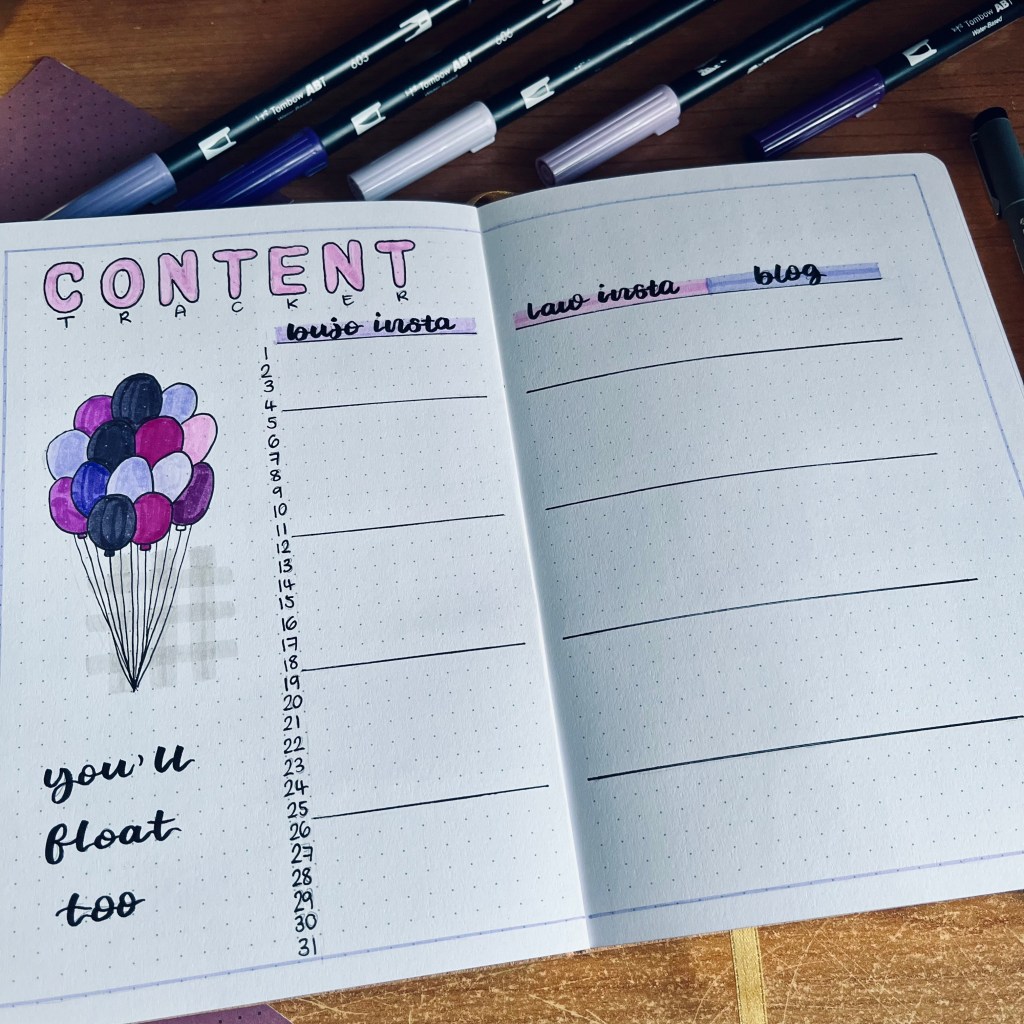 603
Tombow ABT
606
Tombow ABT
Tombow ABT
Water-Based
CONTENT
TRACKER
bujo insta
law insta
blog
1
2
3
4
5
6
7
8
9
10
11
12
13
14
15
16
17
18
19
20
21
22
23
24
25
26
27
28
29
30
31
you'll
float
too